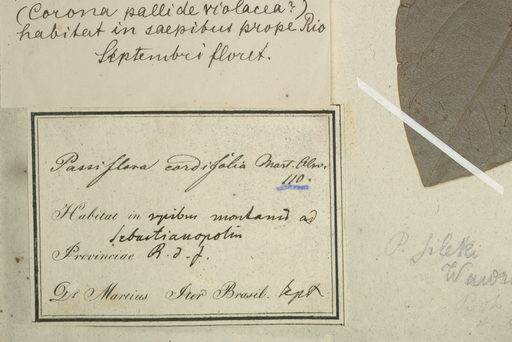 (Corona pallide violacea?)
habitat in saepibus prope Rio
Septembri floret.
Passiflora cordifolia Mart. Obs.
110.
Habitat in sepibus montanis ad
Sebastianopolin
Provinciae R. d. J.
Dr Martius Iter Brasil. Sept
P.